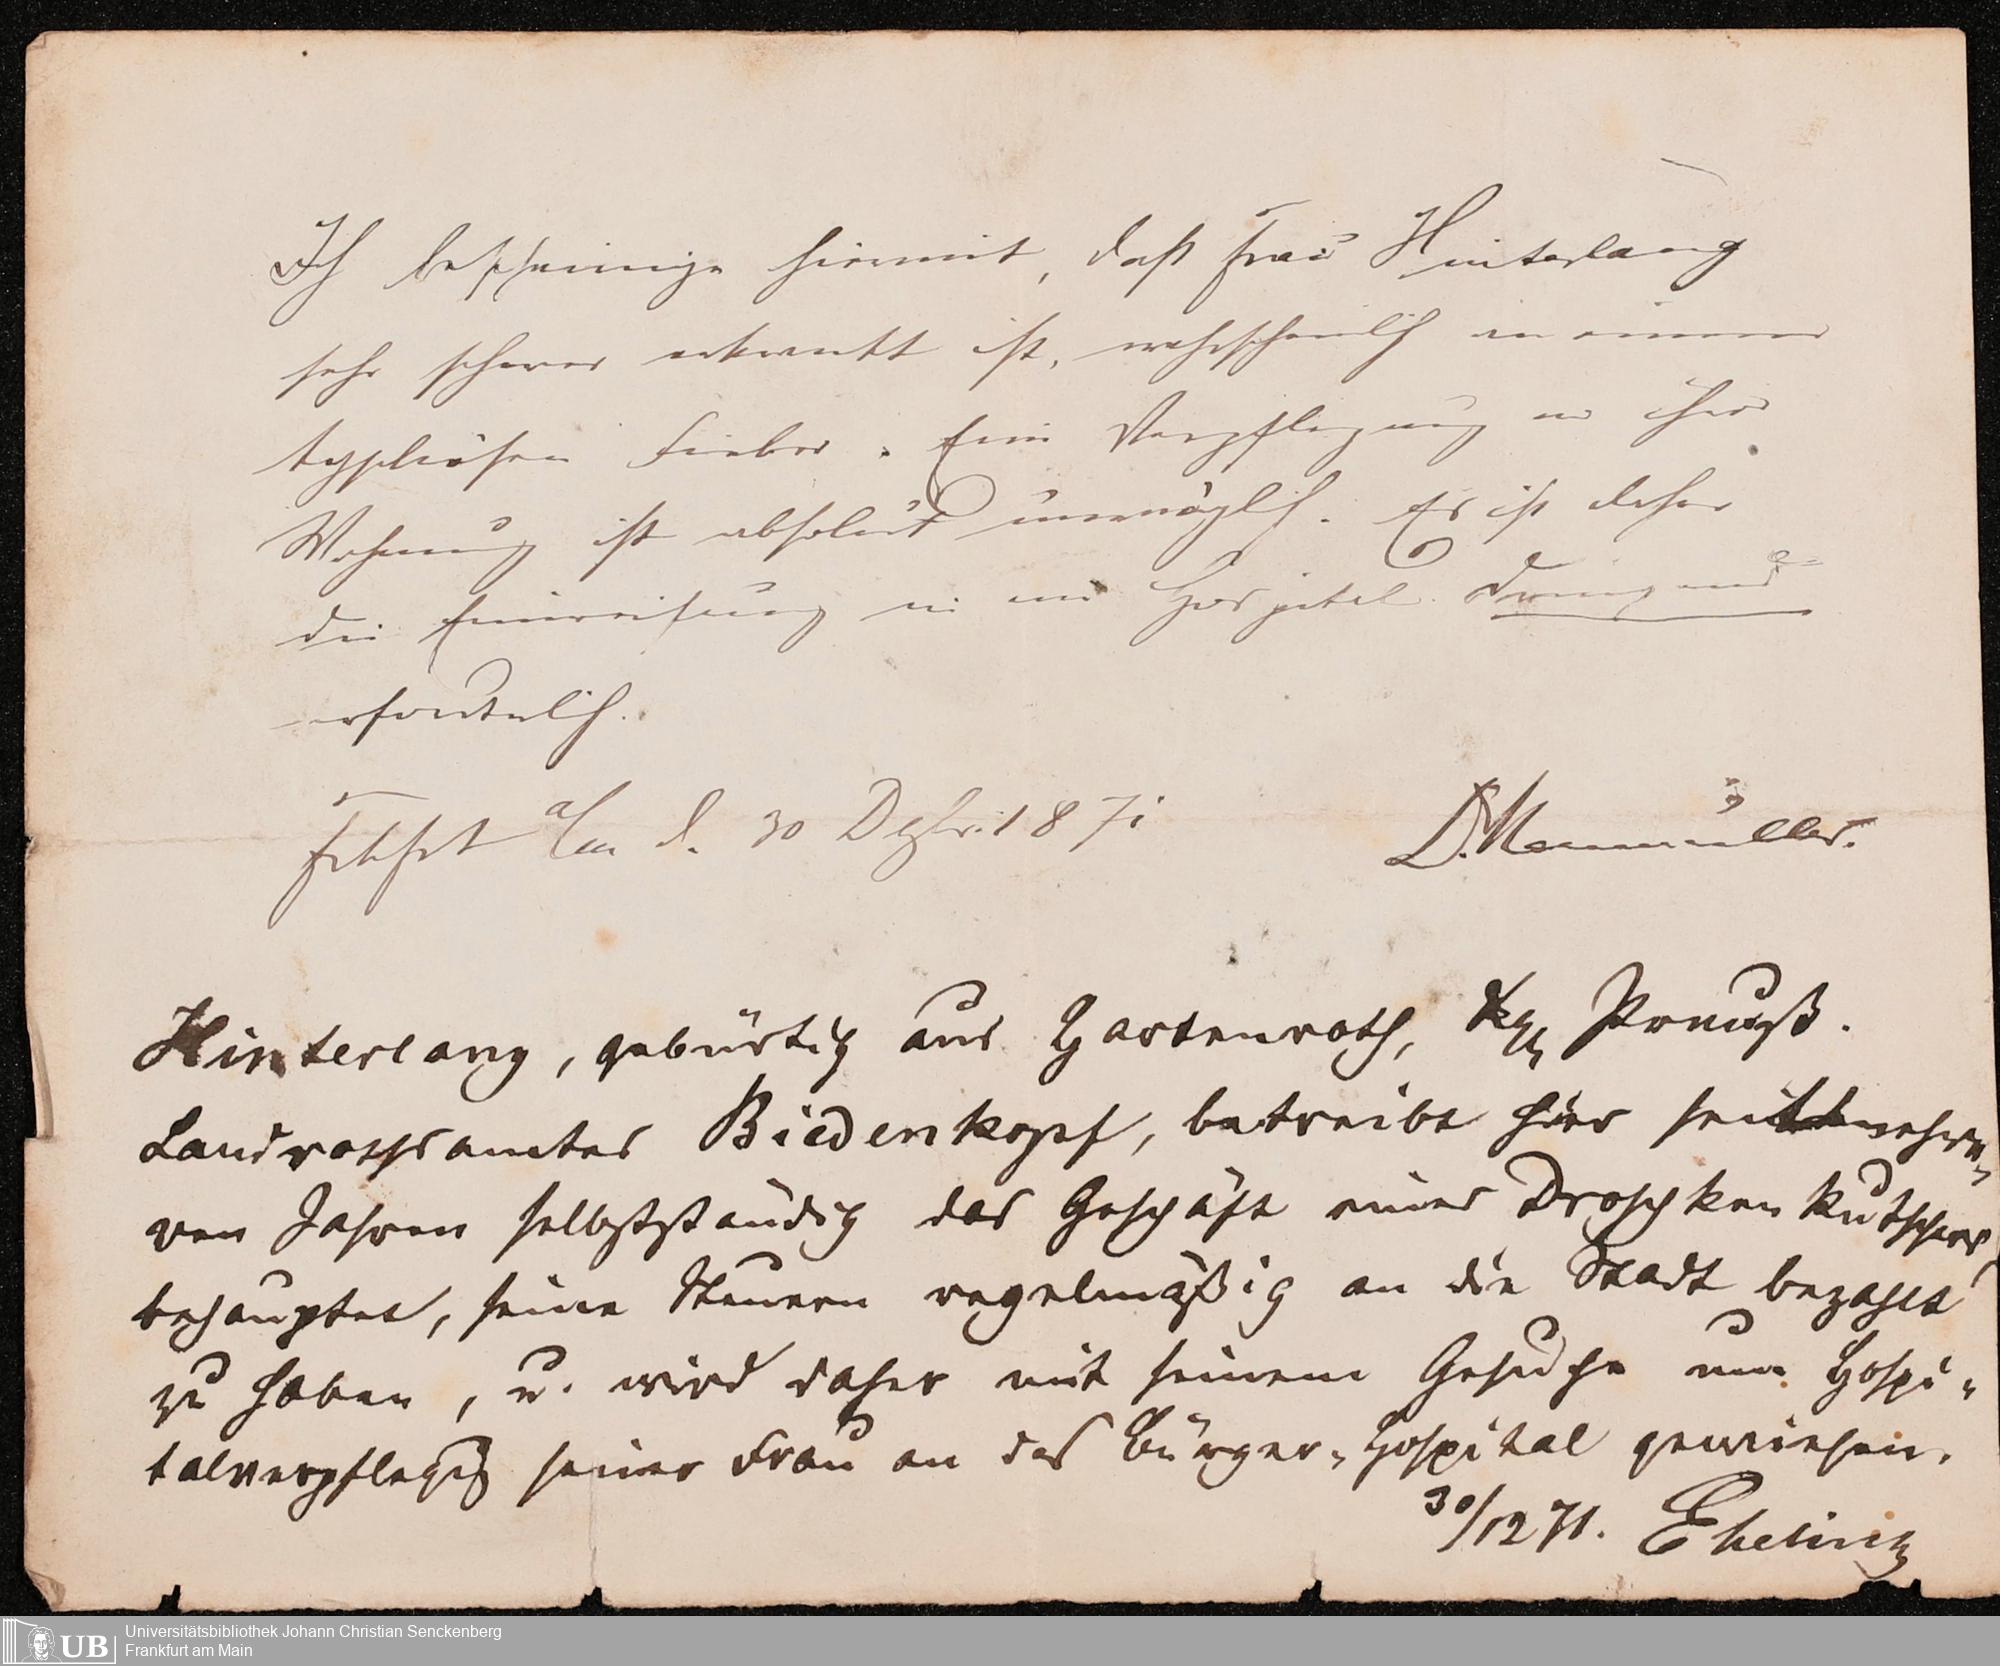 Ich bescheinige hiermit, daß Frau Hinterlang
sehr schwer erkrankt ist, wahrscheinlich an einem
typhösen Fieber. Eine Verpflegung in ihrer
Wohnung ist absolut unmöglich. Es ist daher
die Einweisung in ein Hospital dringend
erforderlich.
Frkfrt a/m d. 30 Dezbr. 1871
Dr. Neumüller.
Hinterlang, gebürtig aus Hartenroth, Kgl. Preuß.
Landrathsamtes Biedenkopf, betreibt hier seit mehre-
ren Jahren selbstständig das Geschäft eines Droschkenkutschers,
behauptet, seine Steuern regelmäßig an die Stadt bezahlt
zu haben, u. wird daher mit seinem Gesuche um Hospi-
talverpflegg seiner Frau an das Bürger-Hospital gewiesen.
30/12 71.
UB
Universitätsbibliothek Johann Christian Senckenberg
Frankfurt am Main